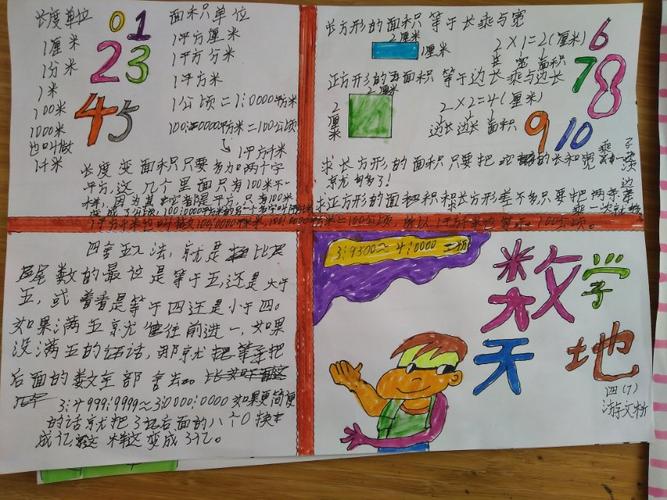 长度单位
1厘米
1分米
1米
100米
1000米
也叫做
1千米
0 1
2 3
4 5
面积单位
1平方厘米
1平方分米
1平方米
1公顷=1:0000平方米
100:0000平方米=100公顷
1平方千米
长度变面积只要多加两个字
平方,这几里面只有100米不一
样,因为其它都是平方,只有100米
长方形的面积等于长乘与宽
2厘米
1厘米
2×1=2(厘米)
长 宽 面积
正方形的面积等于边长乘与边长
2厘米
2厘米
2×2=4(厘米)
边长 边长 面积
6
7 8
9 10
求长方形的面积只要把 的长和宽乘一次
就好了!
求正方形的面积和长方形差不多只要把两条边
乘一次就
四舍五入法,就是比
尾数的最 位是等于五还是大于
五,或 看是等于四还是小于四。
如果满五就往前进一,如果
没满五的话,那就把
后面的数全部舍去。
3:4999:9999≈3:0000:0000如果更简便
的话就把3亿后面的八个0换
成亿 这样变成3亿。
3:9500≈4:0000
数学
天地
四(7)
游文彬